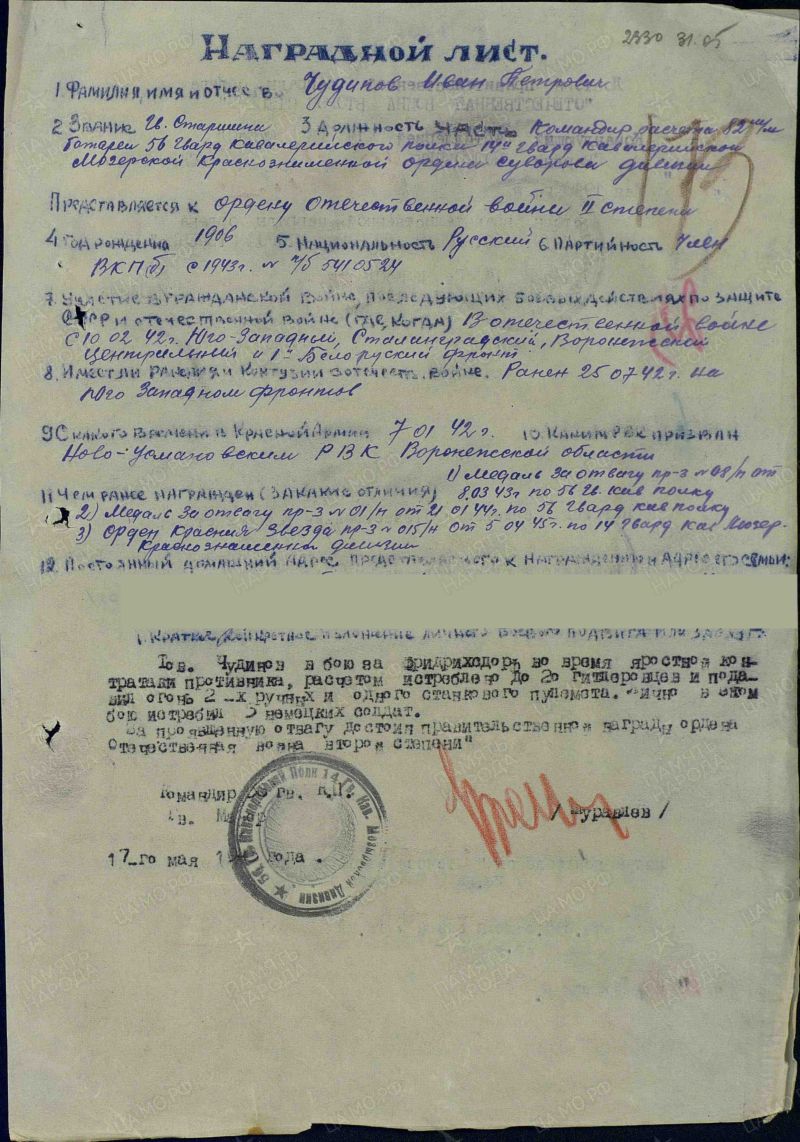 2330 31.05
Наградной лист.
1 Фамилия, имя и отчество Чудинов Иван Петрович
2 Звание Гв. Старшина 3 Должность часть Командир расчета 82 м/м
батереи 56 Гвард Кавалерийского полка 14й гвард Кавалерийской
Мозерской Краснознаменной ордена Суворова дивизии
Представляется к ордену Отечественной войны II степени
4 Год рождения 1906 5. Национальность Русский 6 Партийность Член
ВКП(б) с 1943г. №
7. Участие в гражданской войне, последующих боевых действиях по защите
СССР и отечественной войне (где, когда) В отечественной войне
с 10 02 42г. Юго-Западный, Сталинградский, Воронежский
Центральный и 1й Белоруский фронт
8. Имеет ли ранения и контузии в отечеств. войне. Ранен 25 07 42г. на
Юго Западном фронтов
9 С какого времени в Красной Армии 7 01 42г. 10 Каким РВК призван
Ново-Усмановским РВК Воронежской области
1) Медаль За отвагу пр-з № 08/н от
11 Чем ранее награжден (за какие отличия) 8.03 43г. по 56 Гв. кав полку
2) Медаль За отвагу пр-з № 01/н от 21 01 44г. по 56 Гвард кав полку
3) Орден Красная Звезда пр-з № 015/н от 5 04 45г. по 14 гвард Кав Мозер.
Краснознаменной дивизии
12. Постоянный домашний адрес представляемого к награждению и адрес его семьи:
1 Краткое, конкретное изложение личного боевого подвига или заслуг
Тов. Чудинов в бою за Фридрихсдорь во время яростной кон-
тратаки противника, расчетом истреблено до 20 гитлеровцев и пода-
вил огонь 2-х ручных и одного станкового пулемета. Лично в этом
бою истребил 3 немецких солдат.
За проявленную отвагу достоин правительственной награды ордена
Отечественная война второй степени"
Командир 56 гв. К.П.
Гв. Майор
/Журавлев/
17-го мая года.
56 Гв. Кавалерийский Полк 14 Гв. Кав. Мозырской Дивизии
ПАМЯТЬ НАРОДА
ЦАМО.РФ